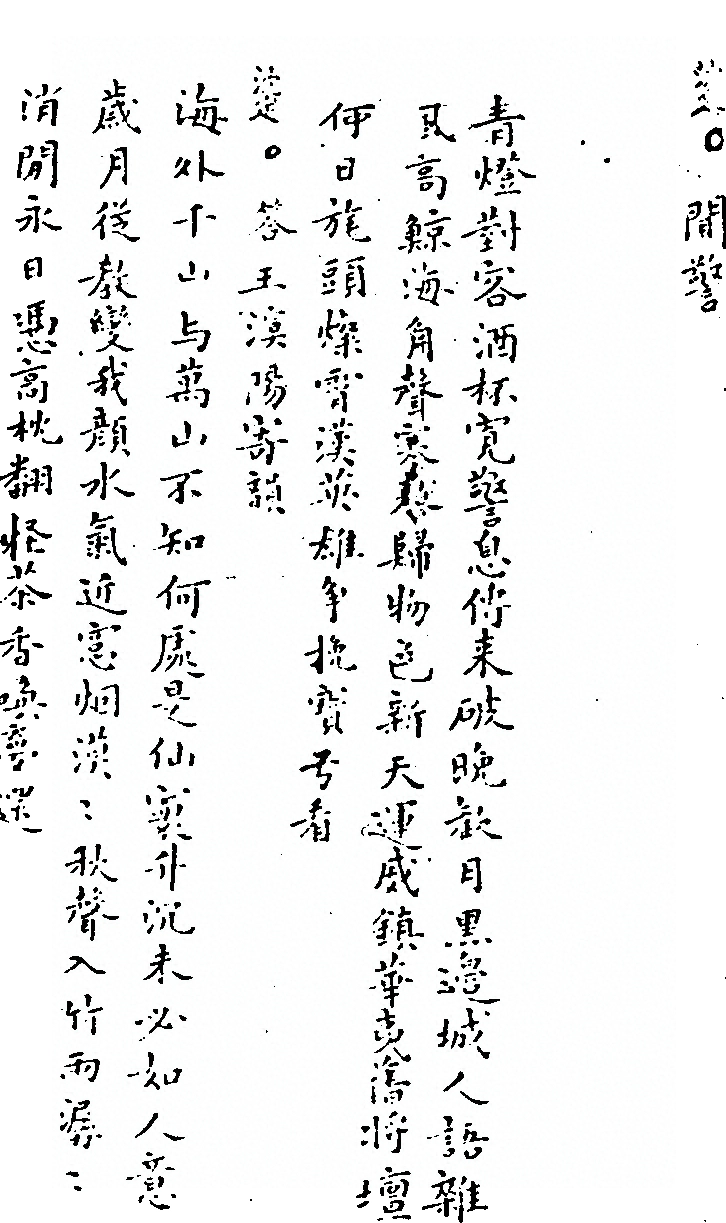 聞警
青燈對客酒杯寬警息傳来破晚歡月黒邊城人語雜
風高鯨海角聲寒歸物色新天運威鎮華夷舊將壇
何日旄頭燦霄漢英雄争挽寳弓看
答王漢陽寄韻
海外千山与萬山不知何處是仙寰升沉未必如人意
歳月從教變我顔水氣近窓烟漠〻秋聲入竹雨潺〻
消閒永日憑高枕翻怪茶香喚夢還